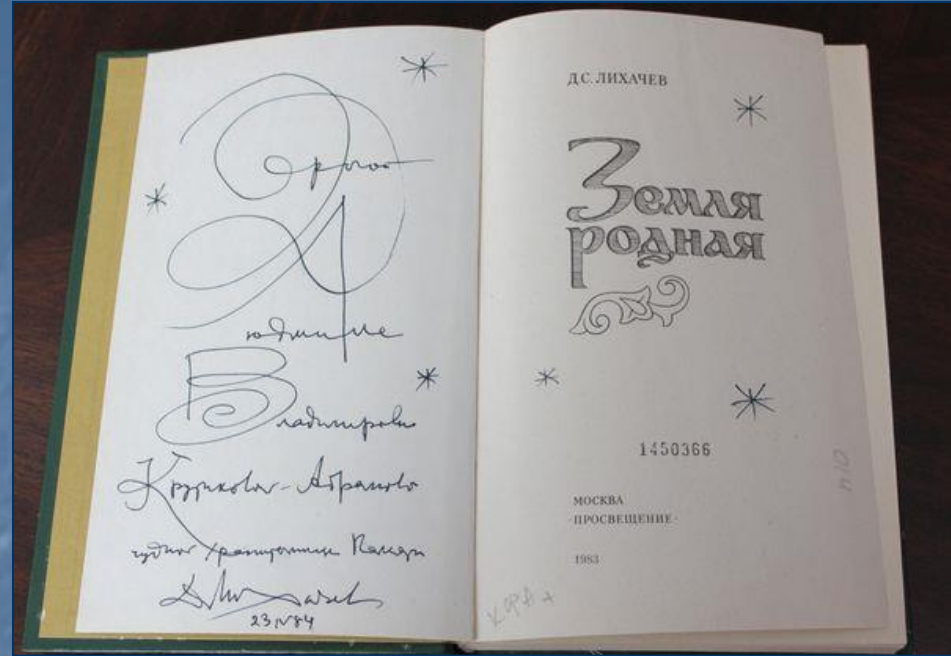 Дорогой
Людмиле
Владимировне
Крутиковой-Абрамовой
чудной хранительнице Памяти
Д. Лихачев
23 IV 84
Д.С. ЛИХАЧЕВ
Земля
родная
1450366
МОСКВА
·ПРОСВЕЩЕНИЕ·
1983